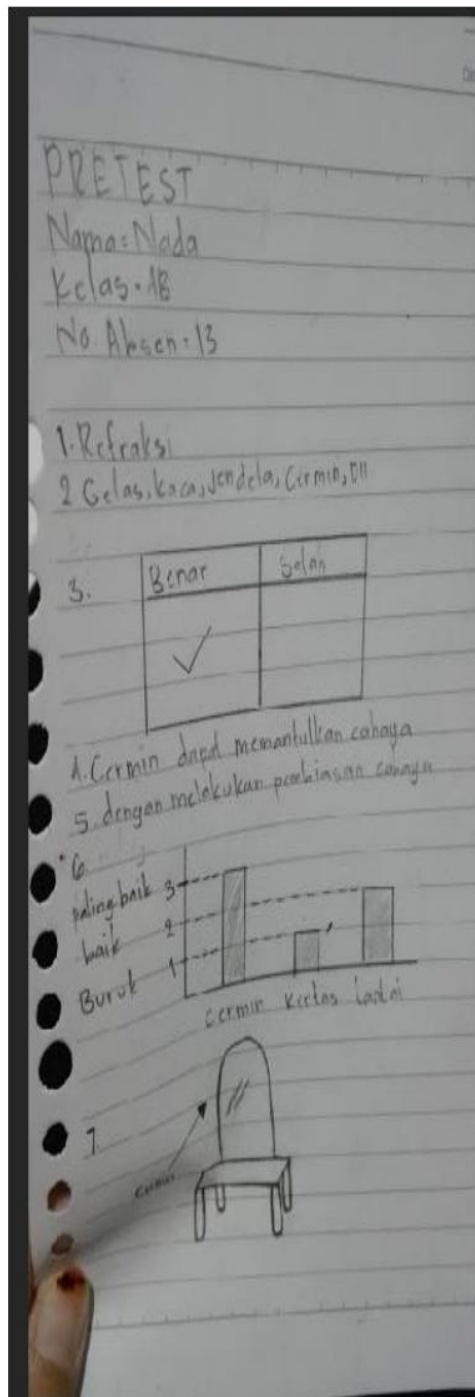 PRETEST
Nama = Nada
Kelas = 4B
No. Absen = 13
1. Refraksi
2 Gelas, kaca, Jendela, Cermin, Dll
3. Benar Salah
4. Cermin dapat memantulkan cahaya
5. dengan melakukan pembiasan cahaya
6.
paling baik 3
baik 2
Buruk 1
cermin kertas lantai
7.
cermin